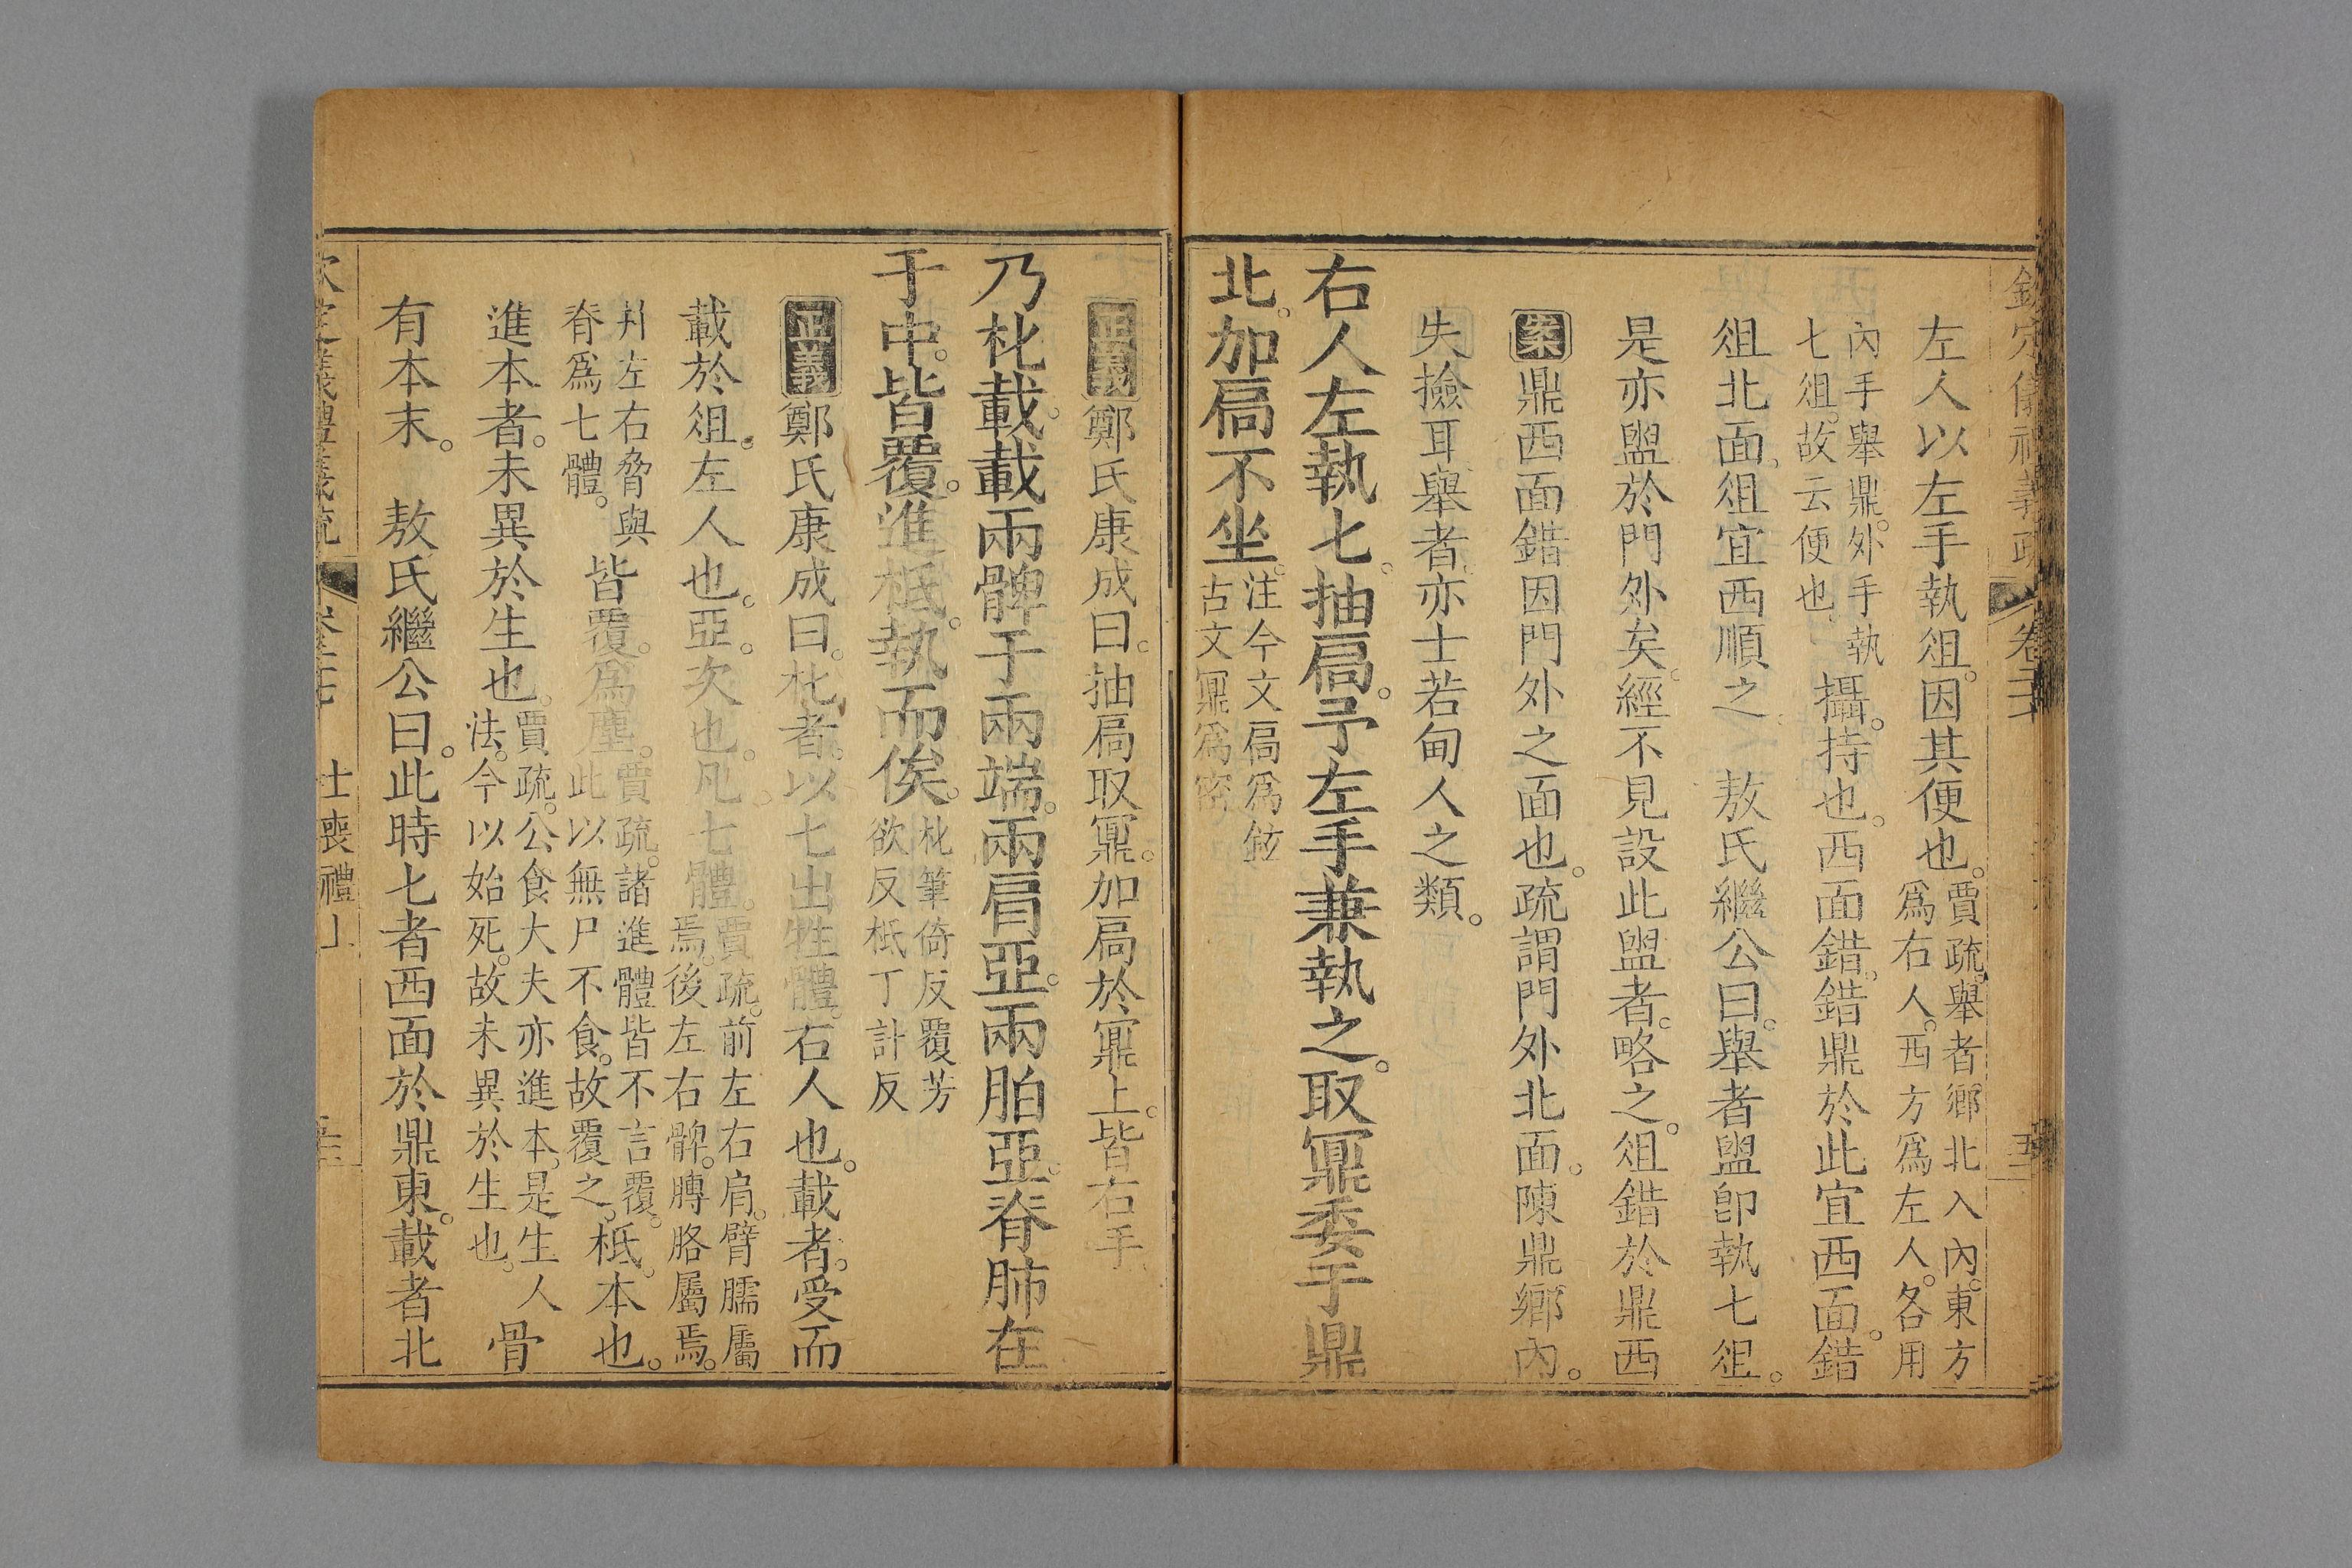 欽定儀禮義疏 卷二十
左人以左手執俎。因其便也。賈疏。舉者鄉北入內。東方爲右人。西方爲左人。各用
內手舉鼎。外手執匕俎。故云便也。攝。持也。西面錯。錯鼎於此宜西面。錯
俎北面。俎宜西順之。 敖氏繼公曰。舉者盥卽執匕俎。
是亦盥於門外矣。經不見設此盥者。略之。俎錯於鼎西
失撿耳。舉者。亦士若甸人之類。
案鼎西面錯因門外之面也。疏謂門外北面。陳鼎鄉內。
右人左執匕。抽扃。予左手兼執之。取鼏委于鼎
北。加扃不坐。注今文扃爲鉉古文鼏爲密
正義鄭氏康成曰。抽扃取鼏。加扃於鼏上。皆右手。
乃朼載。載兩髀于兩端。兩肩亞。兩胉亞。脊肺在
于中。皆覆。進柢。執而俟。朼筆倚反覆芳欲反柢丁計反
正義鄭氏康成曰。朼者。以匕出牲體。右人也。載者。受而
載於俎。左人也。亞。次也。凡七體。賈疏。前左右肩。臂臑屬焉。後左右髀。膞胳屬焉。
幷左右脅與脊爲七體。皆覆。爲塵。賈疏。諸進體皆不言覆。此以無尸不食。故覆之。柢。本也。
進本者。未異於生也。賈疏。公食大夫亦進本。是生人法。今以始死。故未異於生也。骨
有本末。 敖氏繼公曰。此時匕者西面於鼎東。載者北
欽定儀禮義疏 士喪禮